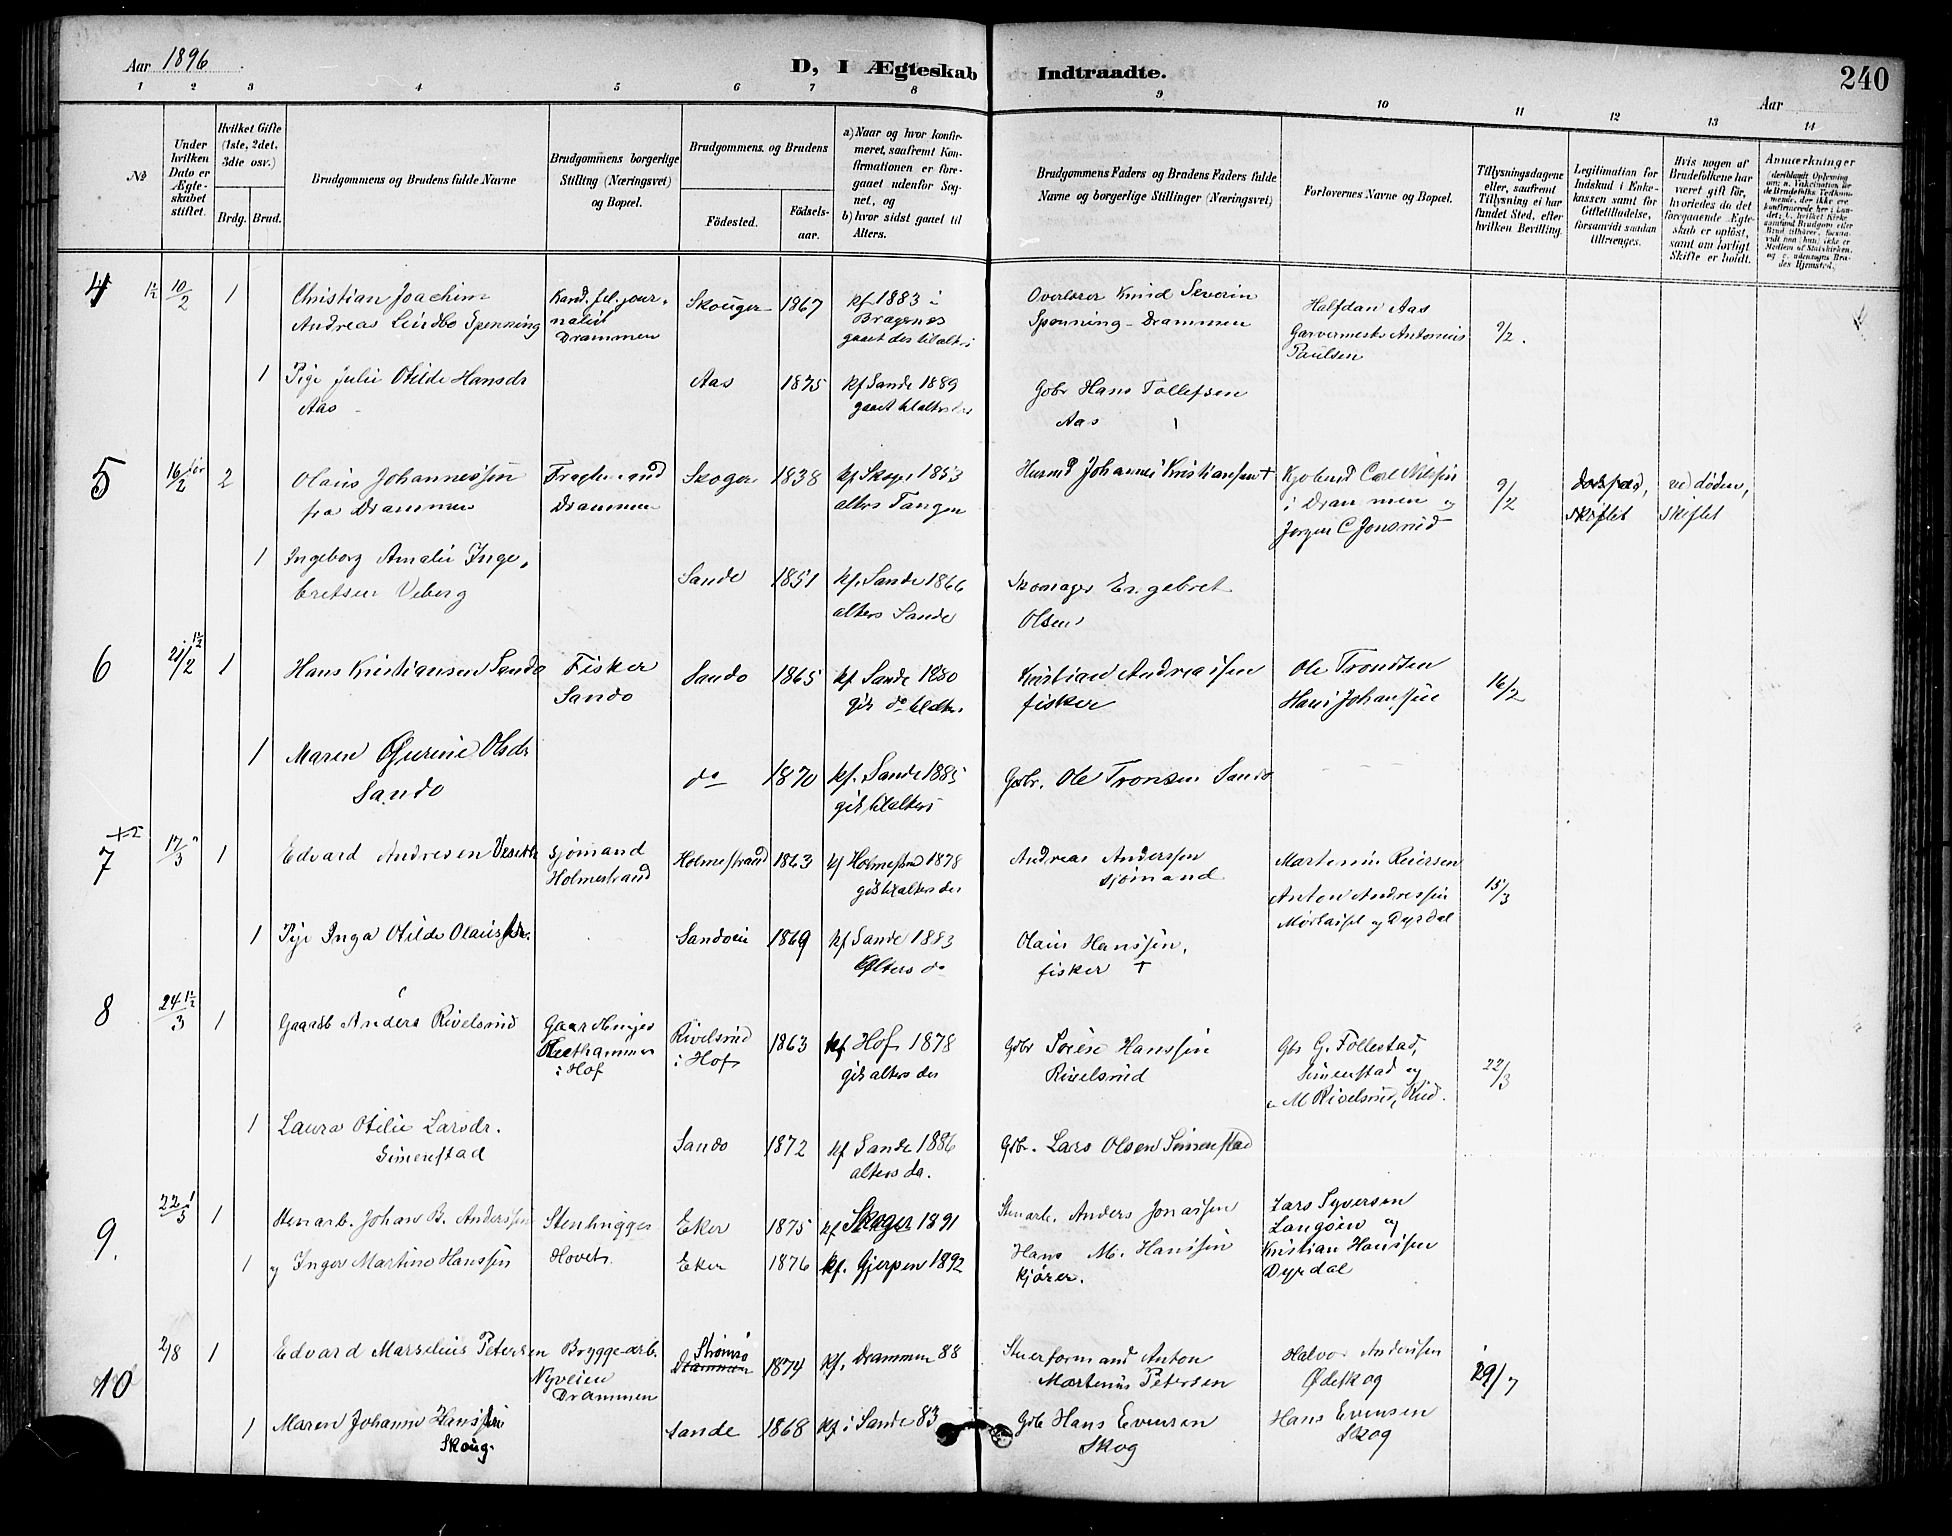 Aar 1896
D, I Ægteskab Indtraadte.
240
Aar
1 2 3 4 5 6 7 8 9 10 11 12 13 14
No
Under hvilken Dato er Ægteskabet stiftet.
Hvilket Gifte (1ste, 2det, 3die osv.)
Brdg. Brud.
Brudgommens og Brudens fulde Navne
Brudgommens borgerlige Stilling (Næringsvei) og Bopæl.
Brudgommens. og Brudens
Fødested.
Fødsels-aar.
a) Naar og hvor konfirmeret, saafremt Konfirmationen er foregaaet udenfor Sognet, og
b) hvor sidst gaaet til Alters.
Brudgommens Faders og Brudens Faders fulde Navne og borgerlige Stillinger (Næringsvei)
Forlovernes Navne og Bopæl.
Tillysningsdagene eller, saafremt Tillysning ei har fundet Sted, efter hvilken Bevilling.
Legitimation for Indskud i Enkekassen samt for Giftetilladelse, forsaavidt saadan tiltrænges.
Hvis nogen af Brudefolkene har været gift før, hvorledes da det foregaaende Ægteskab er opløst, samt om lovligt Skifte er holdt.
Anmærkninger
4 10/2 1 Christian Joachim Andreas Lindbo Spenning
Kand. fil. journalist Drammen
Skouger 1867 kf 1883 i Bragenes gaaet der til alters
Overlærer Knud Severin Spenning - Drammen
Halfdan Aas Garvermester Antonius Paulsen
9/2.
1 Pige Julie Otilde Hansdr Aas
Aas 1875 kf Sande 1889 gaaet til alters der
Gbr Hans Tollefsen Aas
5 16/2 2 Olaus Johannessen fra Drammen
Fragtemand Drammen
Skoger 1838 kf Skoger 1853 alters Tangen
Husmd Johannes Kristiansen +
Kjøbmd Carl Nilsen i Drammen og Jørgen C Jonsrud
9/2
skiftet
ved døden, skiftet
1 Ingeborg Amalie Ingebretsen Veberg
Sande 1851 kf. Sande 1866 alters Sande
Skomager Engebret Olsen
6 21/2 1 Hans Kristiansen Sando
Fisker Sando
Sando 1865 kf Sande 1880 gik do til alter.
Kristian Andreassen fisker
Ole Trondsen Hans Johansen
16/2
1 Maren Gurine Olsdr Sando
do 1870 kf. Sande 1885 gik til alters
Gbr. Ole Tronsen Sando
7 17/3 1 Edvard Andresen
Sjømand Holmestrand
Holmestrand 1863 kf Holmestrand 1878 gik til alters der
Andreas Anderssen sjømand
Martinius Reiersen Anton Andressen og Dyrdal
15/3
1 Pige Inga Otilde Olausdr.
Sandøen 1869 kf Sande 1883 alters do
Olaus Hanssen, fisker +
8 24/3 1 Gaardb Anders Rivelsrud
i Hof
Rivelsrud i Hof 1863 kf Hof 1878 gik alters der
Gbr Søren Hanssen Rivelsrud
Gbr G. Follestad, Simenstad og M Rivelsrud, Rud.
22/3
1 Laura Otilie Larsdr. Simenstad
Sando 1872 kf Sande 1886 alters do.
Gbr. Lars Olsen Simenstad
9. 22/5 1 Stenarb. Johan B. Anderssen
Stenhugger Hovet
Eker 1875 kf Skoger 1891
Stenarb. Anders Jonassen
Lars Syversen Langøen og Kristian Hanssen Dyrdal
1 og Inger Martine Hanssen
Eker 1876 kf. Gjerpen 1892
Hans M. Hanssen kjører.
10 2/8 1 Edvard Marselius Petersen
Brygge-arb. Nyveien Drammen
Strømsø Drammen 1874 kf. Drammen 88
Stuerformand Anton Martinus Petersen
Halvor Andersen Ødeskog
29/7
1 Maren Johanne Hanssen Skoug.
Sande 1868 kf i Sande 83
Gbr Hans Evensen Skog
Hans Evensen Skog